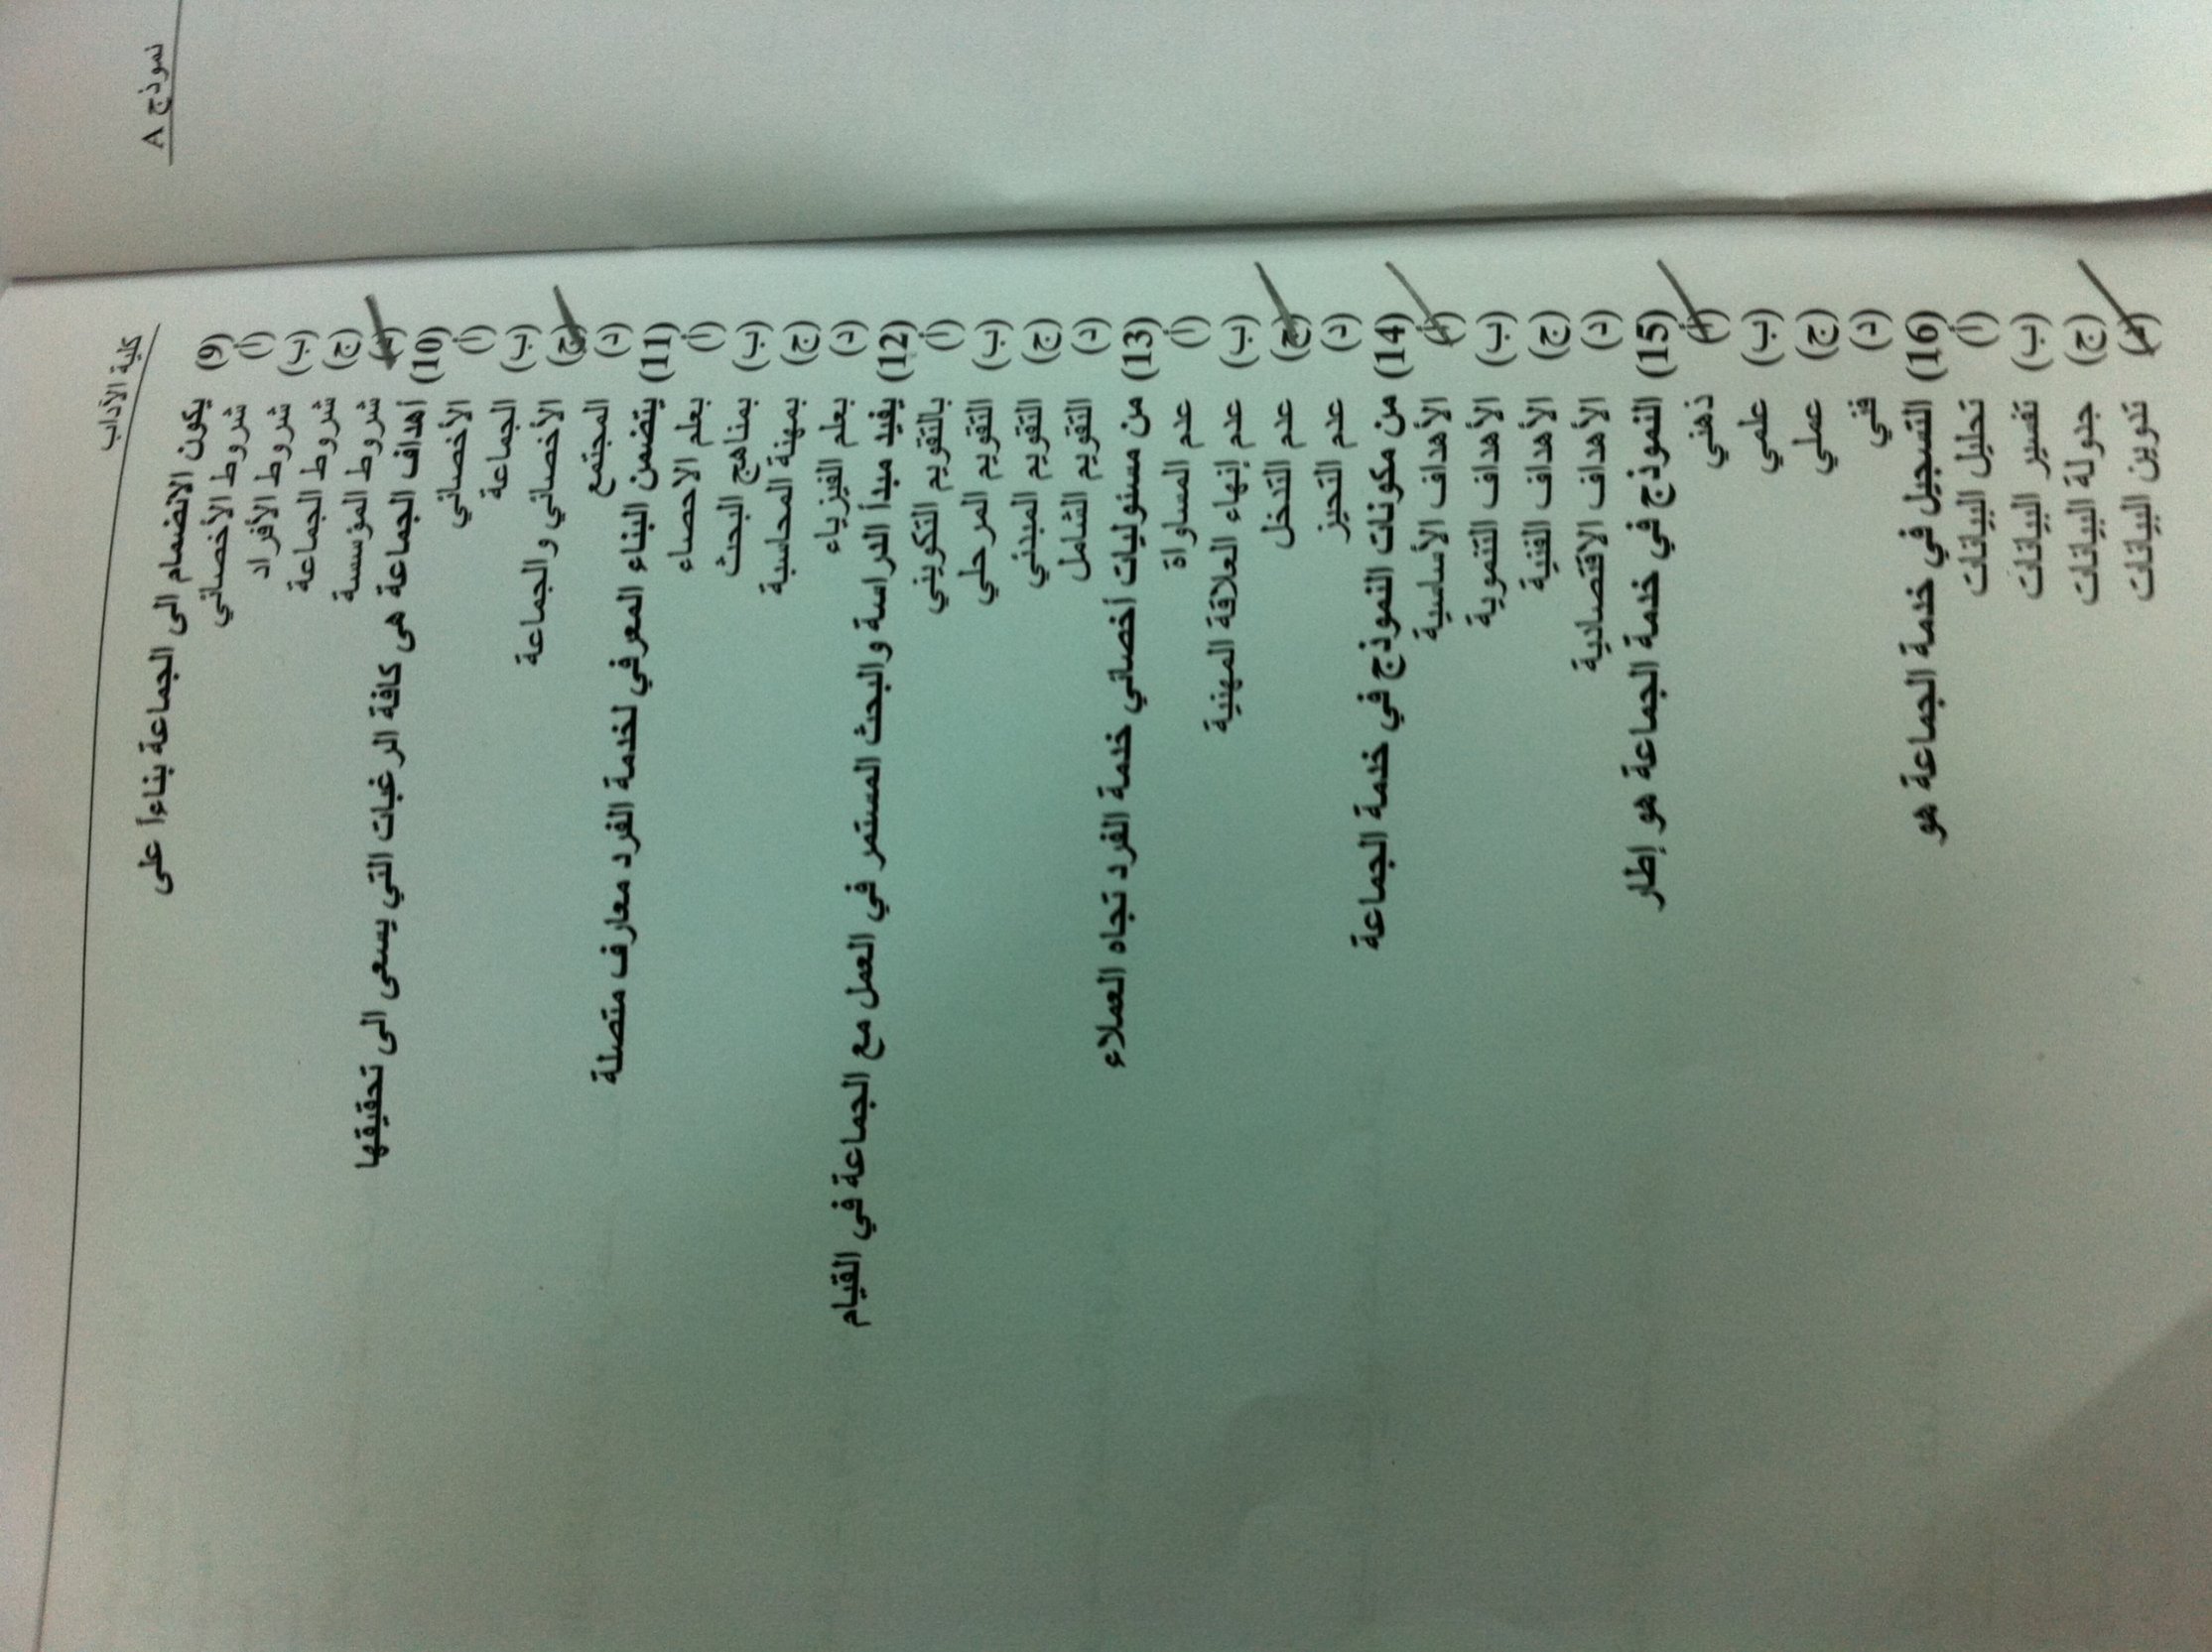 نموذج A
كلية الآداب
(9) يكون الانضمام الى الجماعة بناءاً على
(أ) شروط الأخصائي
(ب) شروط الأفراد
(ج) شروط الجماعة
(د) شروط المؤسسة
(10) أهداف الجماعة هى كافة الرغبات التي يسعى الى تحقيقها
(أ) الأخصائي
(ب) الجماعة
(ج) الأخصائي والجماعة
(د) المجتمع
(11) يتضمن البناء المعرفي لخدمة الفرد معارف متصلة
(أ) بعلم الاحصاء
(ب) بمناهج البحث
(ج) بمهنة المحاسبة
(د) بعلم الفيزياء
(12) يفيد مبدأ الدراسة والبحث المستمر في العمل مع الجماعة في القيام
(أ) بالتقويم التكويني
(ب) التقويم المرحلي
(ج) التقويم المبدئي
(د) التقويم الشامل
(13) من مسئوليات أخصائي خدمة الفرد تجاه العملاء
(أ) عدم المساواة
(ب) عدم إنهاء العلاقة المهنية
(ج) عدم التدخل
(د) عدم التحيز
(14) من مكونات النموذج في خدمة الجماعة
(أ) الأهداف الأساسية
(ب) الأهداف التنموية
(ج) الأهداف الفنية
(د) الأهداف الاقتصادية
(15) النموذج في خدمة الجماعة هو إطار
(أ) ذهني
(ب) علمي
(ج) عملي
(د) فني
(16) التسجيل في خدمة الجماعة هو
(أ) تحليل البيانات
(ب) تفسير البيانات
(ج) جدولة البيانات
(د) تدوين البيانات